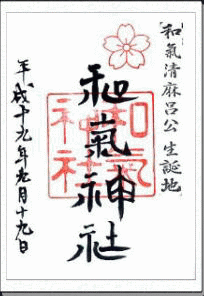 和氣清麻呂公 生誕地
和氣神社
和氣神社
平成十九年九月十九日